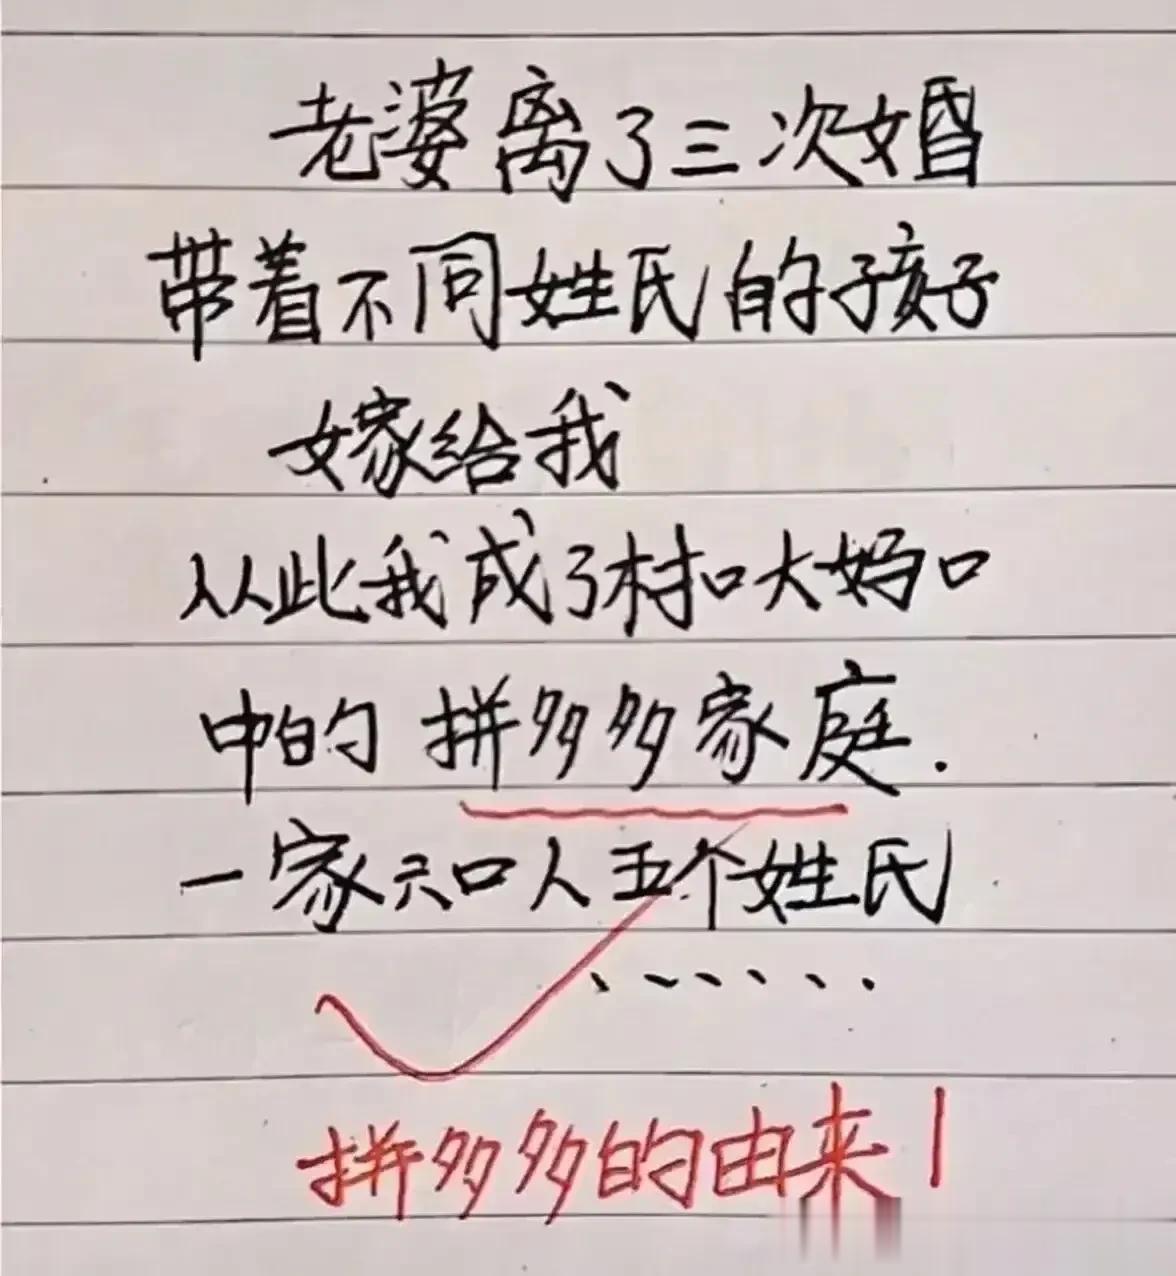 老婆离了三次婚
带着不同姓氏的孩子
嫁给我
从此我成了村口大妈口
中的拼多多家庭.
一家六口人五个姓氏
......
拼多多的由来！